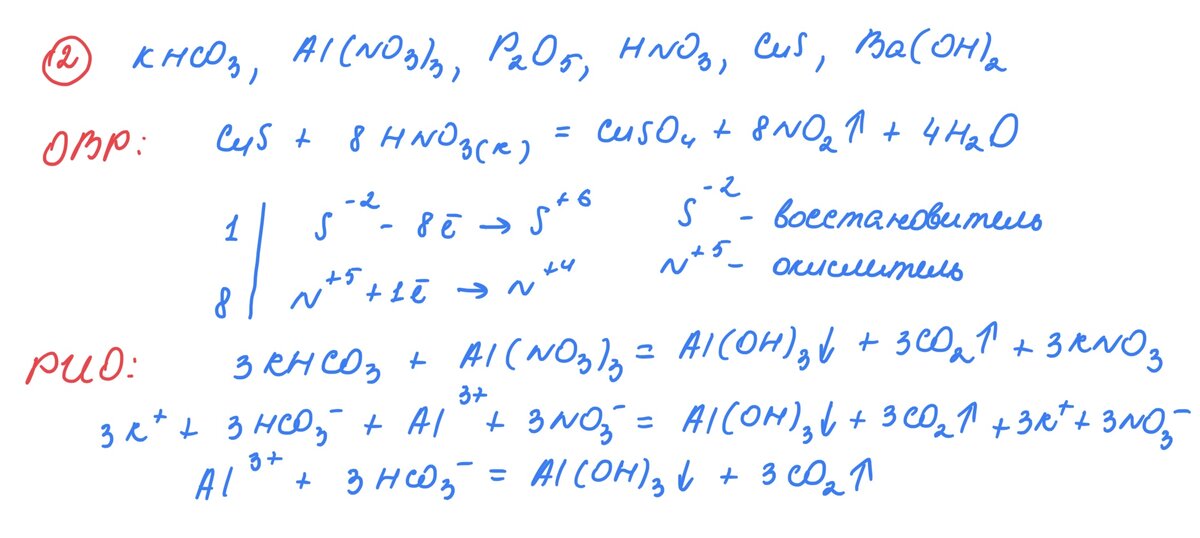 12 KHCO₃, Al(NO₃)₃, P₂O₅, HNO₃, CuS, Ba(OH)₂
ОВР: CuS + 8HNO₃(к) = CuSO₄ + 8NO₂↑ + 4H₂O
1 | S⁻² - 8ē → S⁺⁶ S⁻² - восстановитель
8 | N⁺⁵ + 1ē → N⁺⁴ N⁺⁵ - окислитель
РИО: 3KHCO₃ + Al(NO₃)₃ = Al(OH)₃↓ + 3CO₂↑ + 3KNO₃
3K⁺ + 3HCO₃⁻ + Al³⁺ + 3NO₃⁻ = Al(OH)₃↓ + 3CO₂↑ + 3K⁺ + 3NO₃⁻
Al³⁺ + 3HCO₃⁻ = Al(OH)₃↓ + 3CO₂↑